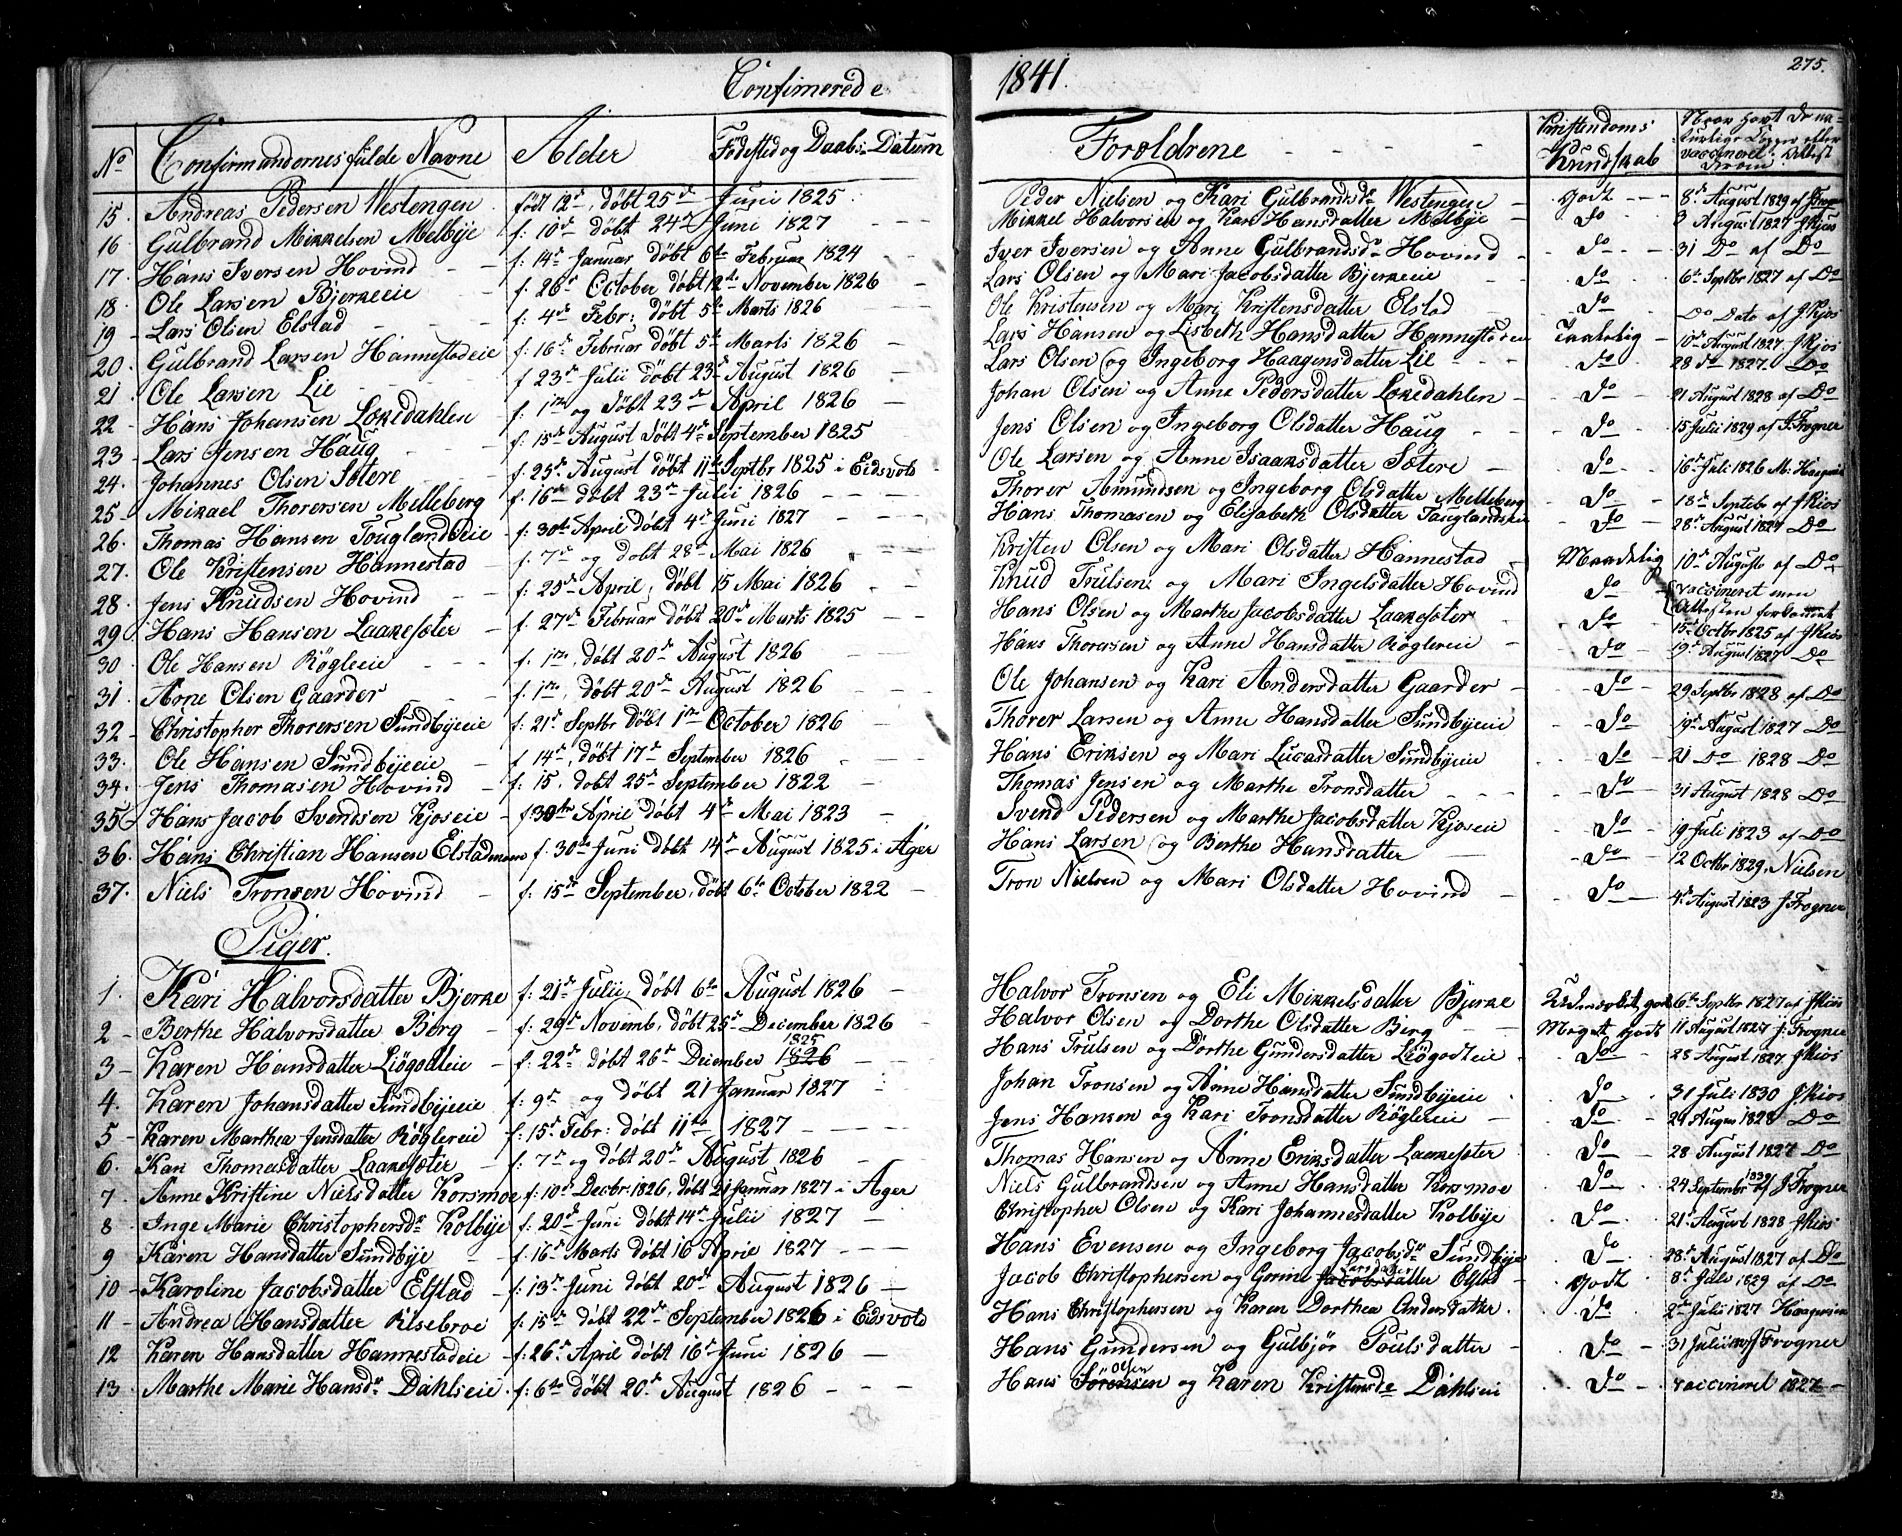 Confirmerede 1841. 275.
No Confirmandernes fulde Navne Alder Födested og Daabs-Datum Forældrene Kristendoms Kundskab
15. Andreas Pedersen Westengen född 12te, döbt 25de Juni 1825. Peder Nielsen og Kari Gulbrandsdr Westengen godt 8de August 1829 af Frogner
16. Gulbrand Mikkelsen Melbÿe f. 10de döbt 24de Juni 1827 Mikkel Halvorsen og Kari Hansdatter Melbÿe do 3 August 1827 J. Kiös
17. Hans Iversen Hovind f. 14de Januar döbt 6te Februar 1824 Iver Iversen og Anne Gulbrandsdr Hovind do 31 Do af Do
18. Ole Larsen Bjerkeeie f. 26de October döbt 12te November 1826 Lars Olsen og Mari Jacobsdatter Bjerkeeie do 6te Septbr 1827 af Do
19 Lars Olsen Elstad f. 4de Febr: döbt 5te Marts 1826 Ole Kristensen og Mari Kristensdatter Elstad do Do Dato af J. Kiös
20. Gulbrand Larsen Hannestadeie f. 16de Februar döbt 5te Marts 1826 Lars Hansen og Lisbeth Hansdatter Hannestadeie Taalelig 10de August 1827 J. Kiös
21 Ole Larsen Lie f 23de Julii döbt 23de August 1826 Lars Olsen og Ingeborg Haagensdatter Lie do 28 do 1827. Do
22 Hans Johansen Lökedahlen f. 1ste og döbt 23de April 1826 Johan Olsen og Anne Pedersdatter Lökedahlen do 21 August 1828 af Do
23 Lars Jensen Haug f. 15de August döbt 4de September 1825 Jens Olsen og Ingeborg Olsdatter Haug do 15 Julii 1829 af J. Frogner
24. Johannes Olsen Sætere f. 25de August döbt 11te Septbr 1825 i Eidsvold Ole Larsen og Anne Isaaksdatter Sætere do 16de Juli 1826 M.
25 Mikael Thorersen Melleberg f. 16de döbt 23de Julii 1826 Thorer Amundsen og Ingeborg Olsdatter Melleberg do 18de Septebr af J. Kiös
26. Thomas Hansen Touglandseie f. 30te April döbt 4de Juni 1827 Hans Thomasen og Elisabeth Olsdatter do 28de August 1827 Do
27. Ole Kristensen Hannestad f. 7de og döbt 28de Mai 1826 Kristen Olsen og Mari Olsdatter Hannestad Maadelig 10de August af Do
28. Jens Knudsen Hovind f: 25de April, döbt 15 Mai 1826 Knud Trulsen og Mari Ingelsdatter Hovind do vaccineret men Attesten forkommet
29 Hans Hansen Laakesæter f. 27de Februar döbt 20de Marts 1825 Hans Olsen og Marthe Jacobsdatter Laakesæter do 15de Octbr 1825 af J. Kiös
30 Ole Hansen Röglerie f. 1ste döbt 20de August 1826 Hans Thoresen og Anne Hansdatter Röglereie do 19de August 1827 Do
31. Arne Olsen Gaarder f. 1ste, döbt 20de August 1826 Ole Johansen og Kari Andersdatter Gaarder do 29 Septbr 1828 af Do
32 Christopher Thorersen Sundbÿeeie f: 21de Septbr döbt 1ste October 1826 Thorer Larsen og Anne Hansdatter Sundbÿeeie do 19de August 1827 Do
33. Ole Hansen Sundbÿeeie f 14de, döbt 17de September 1826 Hans Eriksen og Mari Lucasdatter Sundbÿeeie do 21 Do 1828 Do
34. Jens Thomasen Hovind f: 15. döbt 25de September 1822 Thomas Jensen og Marthe Tronsdatter do 31 August 1828 Do
35 Hans Jacob Svendsen Kjoseie f. 30te April döbt 4de Mai 1823 Svend Pedersen og Marthe Jacobsdatter Kjoseie do 19 Juli 1823 af Do
36. Hans Christian Hansen f. 30te Juni döbt 14de August 1825 i Ager Hans Larsen og Berthe Hansdatter do 12 Octbr 1829. Nielsen
37. Niels Tronsen Hovind f: 15de September, döbt 6te October 1822 Tron Nielsen og Mari Olsdatter Hovind do 4de August 1823 J Frogner
Piger.
1. Kari Halvorsdatter Bjerke f: 21de Julii, döbt 6te August 1826 Halvor Tronsen og Eli Mikkelsdatter Bjerke 6te Septbr 1827 af J Kiös
2 Berthe Halvorsdatter Berg f: 29de Novemb, döbt 25de December 1826 Halvor Olsen og Dorthe Olsdatter Berg Meget godt 11 August 1827 J. Frogner
3 Karen Hansdatter Liögodteie f: 22de döbt 26de December 1826 1825 Hans Trulsen og Dorthe Gundersdatter Liögodteie do 28 August 1827 J Kiös
4. Karen Johansdatter Sundbÿeeie f: 9de og döbt 21 Januar 1827 Johan Tronsen og Anne Hansdatter Sundbÿeeie do 31 Juli 1830 J Kiös
5 Karen Marthea Jensdatter Röglereie f: 15de Febr: döbt 11te 1827 Jens Hansen og Kari Tronsdatter Röglereie do 29 Augus 1828 Do
6. Kari Thomasdatter Laakesæter f: 7de og döbt 20de August 1826 Thomas Hansen og Anne Eriksdatter Laakesæter do 28 August 1827 Do
7 Anne Kristine Nielsdatter Korsmoe f: 10de Decbr. 1826, döbt 21 Januar 1827 i Ager Niels Gulbrandsen og Anne Hansdatter Korsmoe do 24 September J Frogner
8 Inge Marie Christophersdr Kolbÿe f: 20de Juni döbt 14de Julii 1827 Christopher Olsen og Kari Johannesdatter Kolbÿe do 21de August 1828 J Kiös
9 Karen Hansdatter Sundbÿe f: 16de Marts döbt 16 April 1827 Hans Evensen og Ingeborg Jacobsdr Sundbÿe do 28de August 1827 af Do
10 Karoline Jacobsdatter Elstad f: 13de Juni döbt 20de August 1826 Jacob Christophersen og Gorine Jacobsdatter Larsdatter Elstad godt 8de Juli 1829 af Do
11 Andrea Hansdatter Pilsebroe f: 15de döbt 22de September 1826 i Eidsvold Hans Christophersen og Karen Dorthea Andersdatter do 2de Juli 1827
12 Karen Hansdatter Hannestadeie f: 26de April döbt 16de Juni 1826 Hans Gundersen og Gulbjör Poulsdatter do 31 Julii J Frogner
13. Marthe Marie Hansdr Dahlseie f: 6te döbt 20de August 1826 Hans Sörensen Olsen og Karen Kristensdr Dahlseie do vaccineret 1827